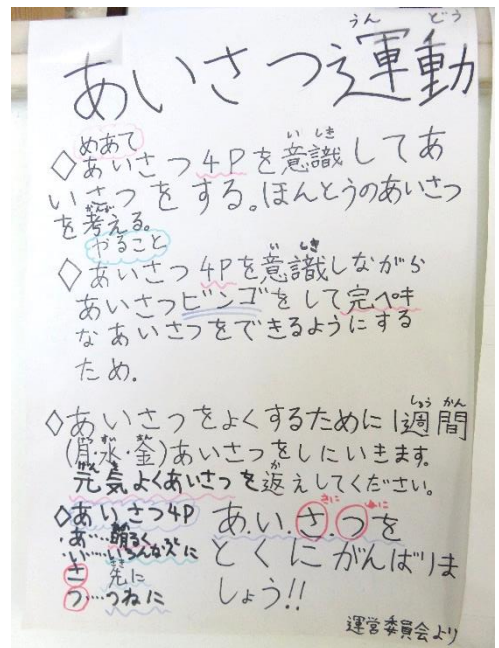 あいさつ運動
めあて
◇あいさつ4Pを意識してあ
いさつをする。ほんとうのあいさつ
を考える。
やること
◇あいさつ4Pを意識しながら
あいさつビンゴをして完ペキ
なあいさつをできるようにする
ため.
◇あいさつをよくするために1週間
(月・水・金)あいさつをしにいきます。
元気よくあいさつを返えしてください。
◇あいさつ4P
あ・・・明るく
い・・・いろんな人に
さ・・・先に
つ・・・つねに
あ.い.さ.つを
とくにがんばりま
しょう!!
運営委員会より